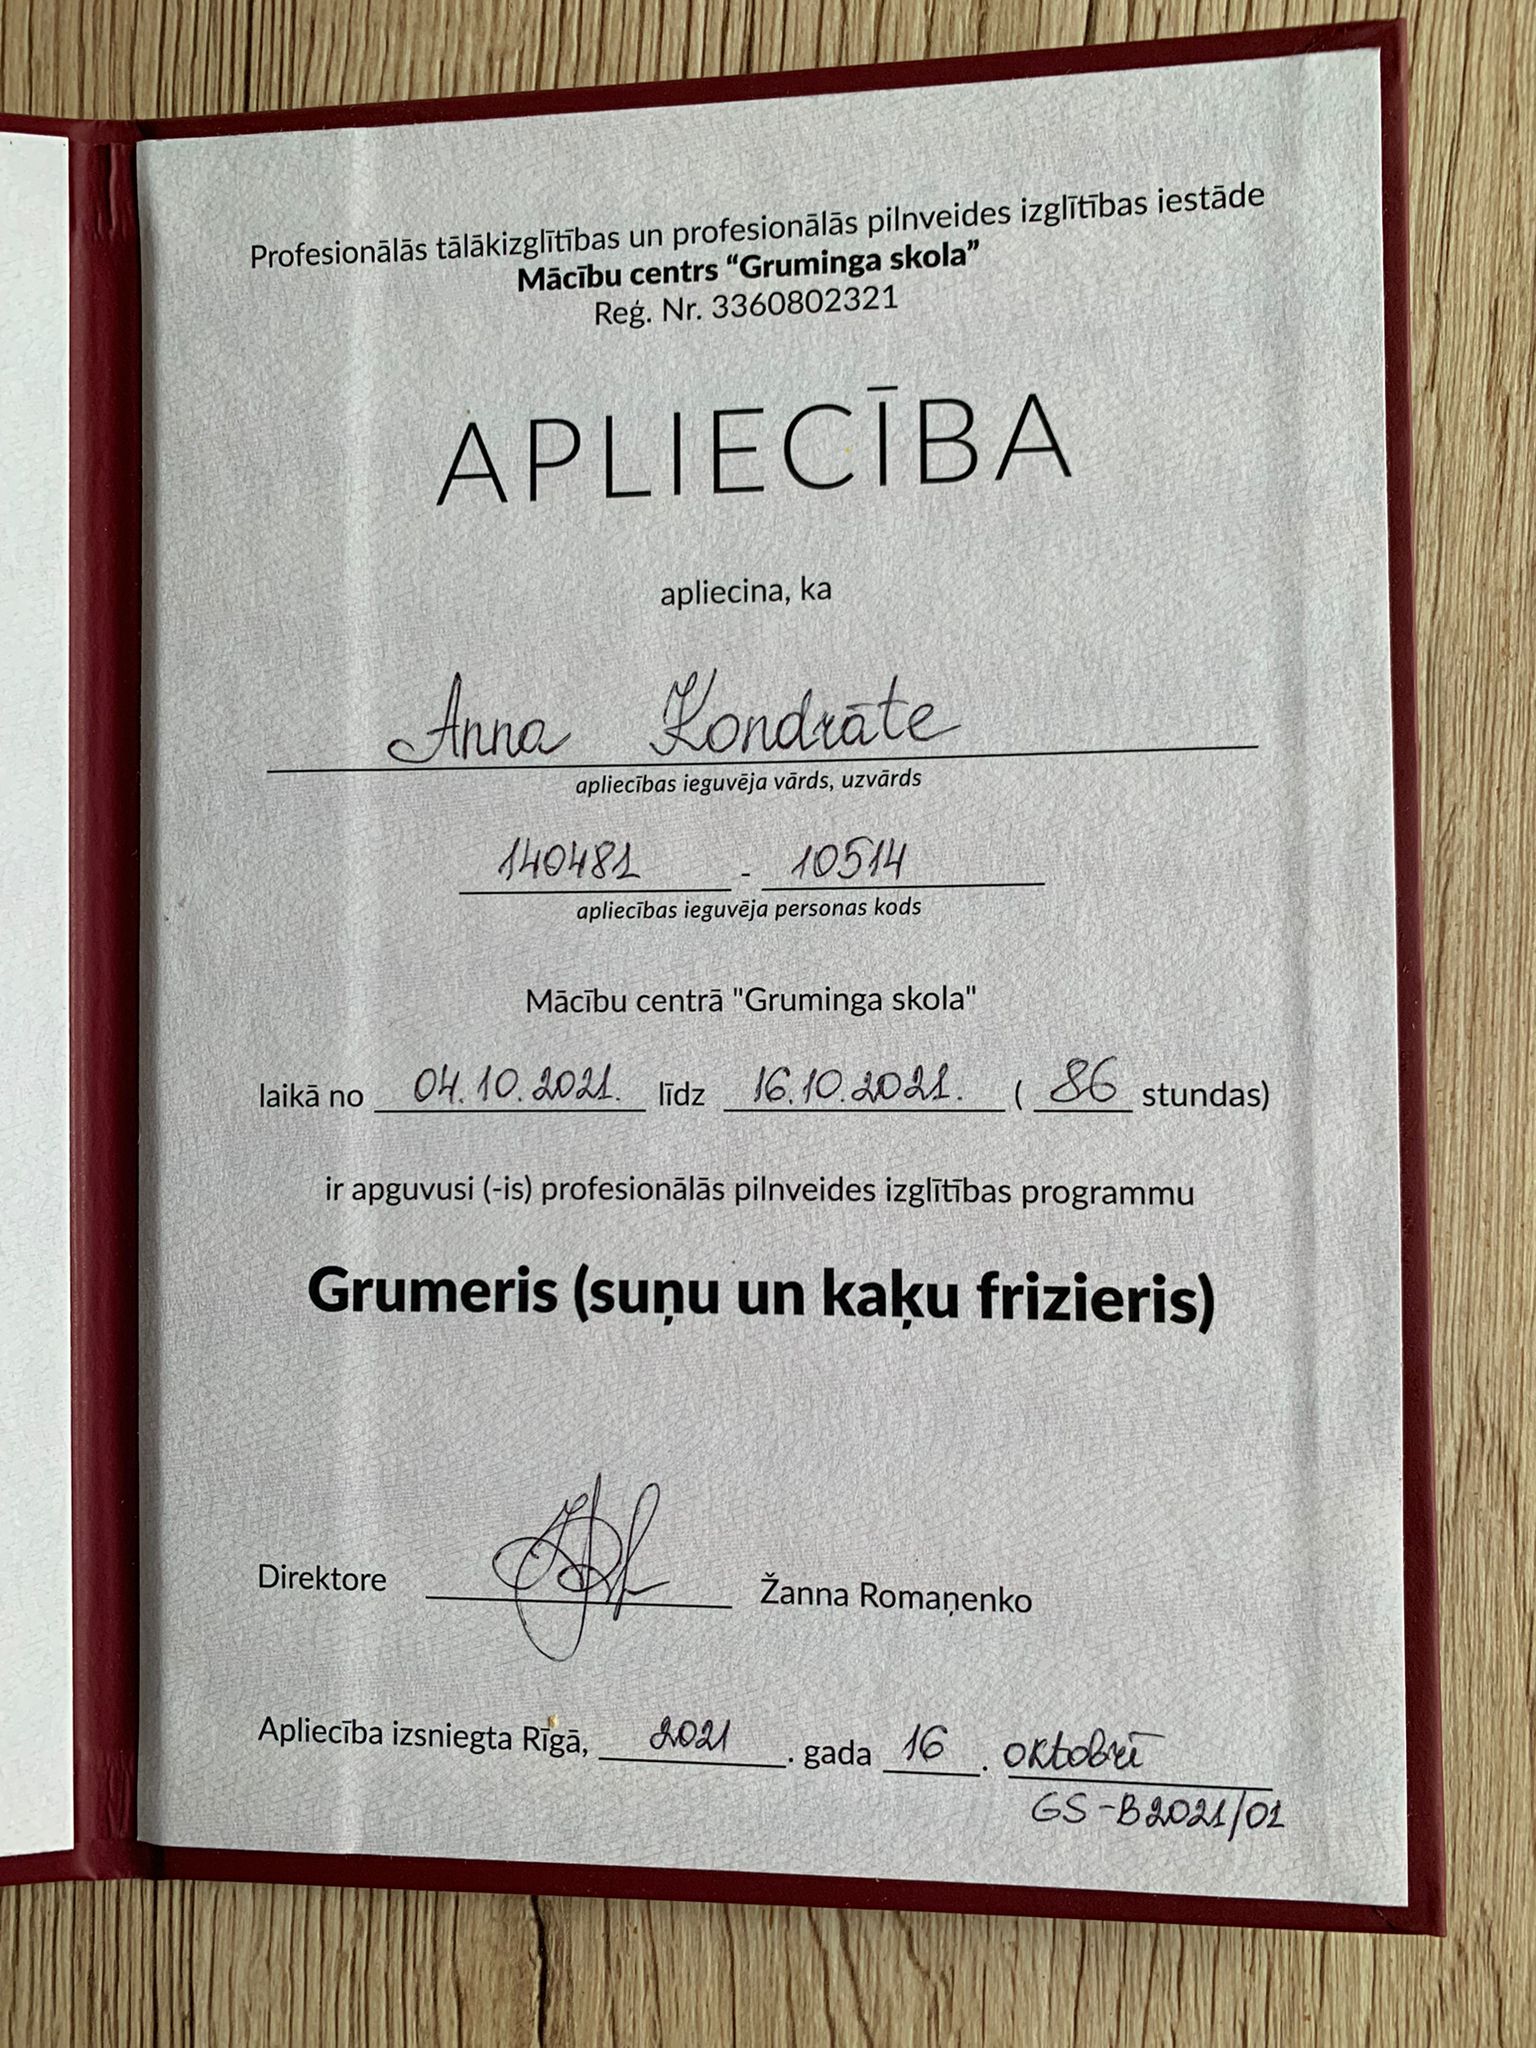 Profesionālās tālākizglītības un profesionālās pilnveides izglītības iestāde
Mācību centrs “Gruminga skola”
Reģ. Nr. 3360802321
APLIECĪBA
apliecina, ka
Anna Kondrāte
apliecības ieguvēja vārds, uzvārds
140481 - 10514
apliecības ieguvēja personas kods
Mācību centrā "Gruminga skola"
laikā no 04.10.2021. līdz 16.10.2021. ( 86 stundas)
ir apguvusi (-is) profesionālās pilnveides izglītības programmu
Grumeris (suņu un kaķu frizieris)
Direktore Žanna Romaņenko
Apliecība izsniegta Rīgā, 2021 . gada 16 . oktobrī
GS-B2021/01